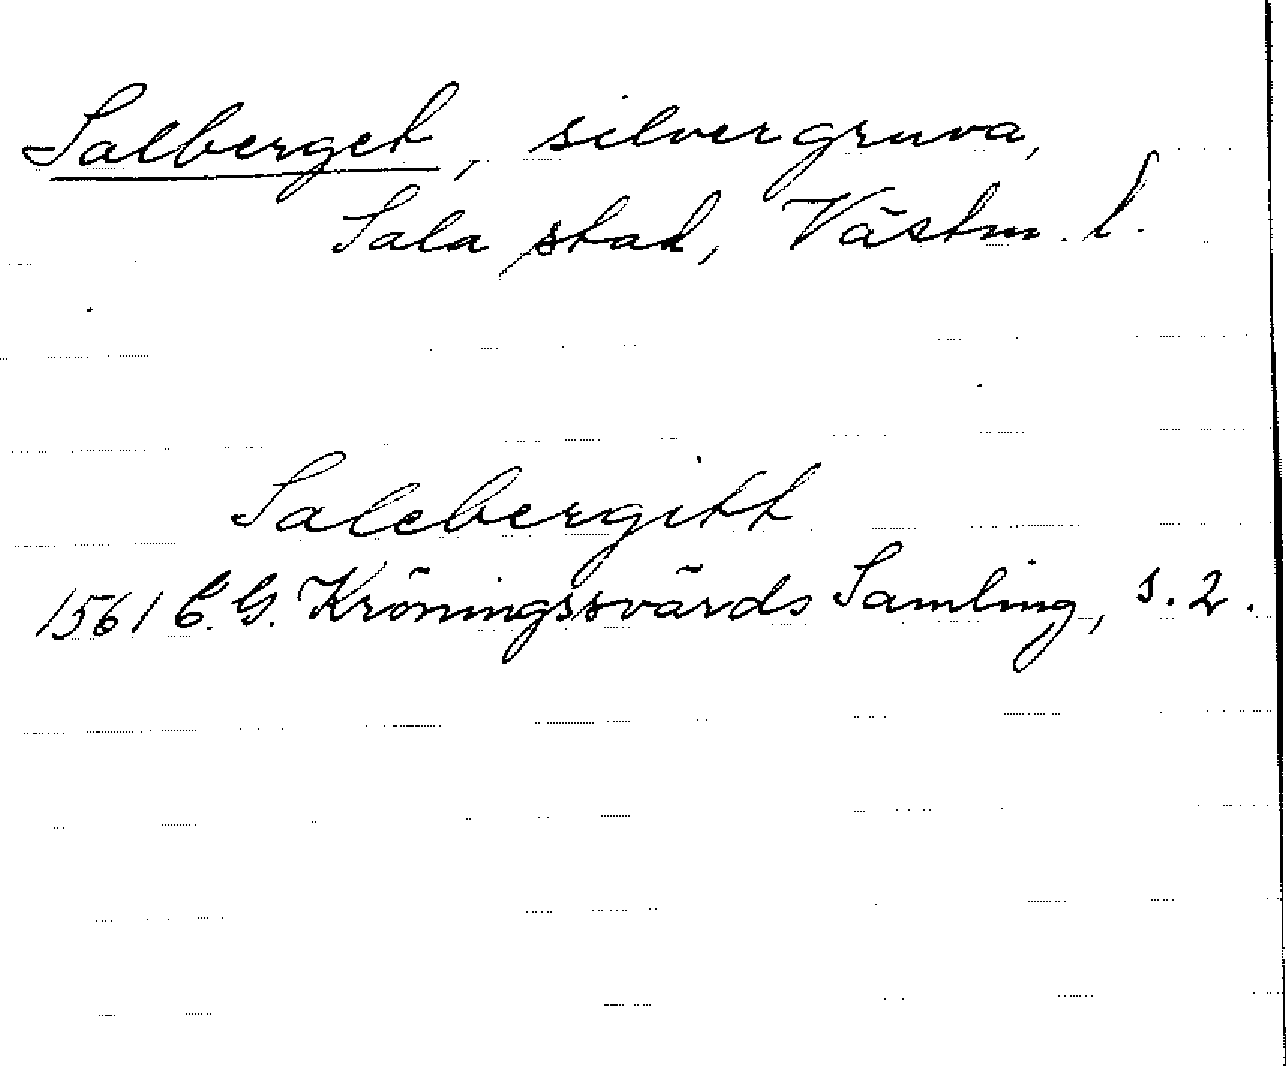 Salberget, silvergruva,
Sala stad, Västm. l.
Salebergitt
1561 C. G. Kröningssvärds Samling, s. 2.